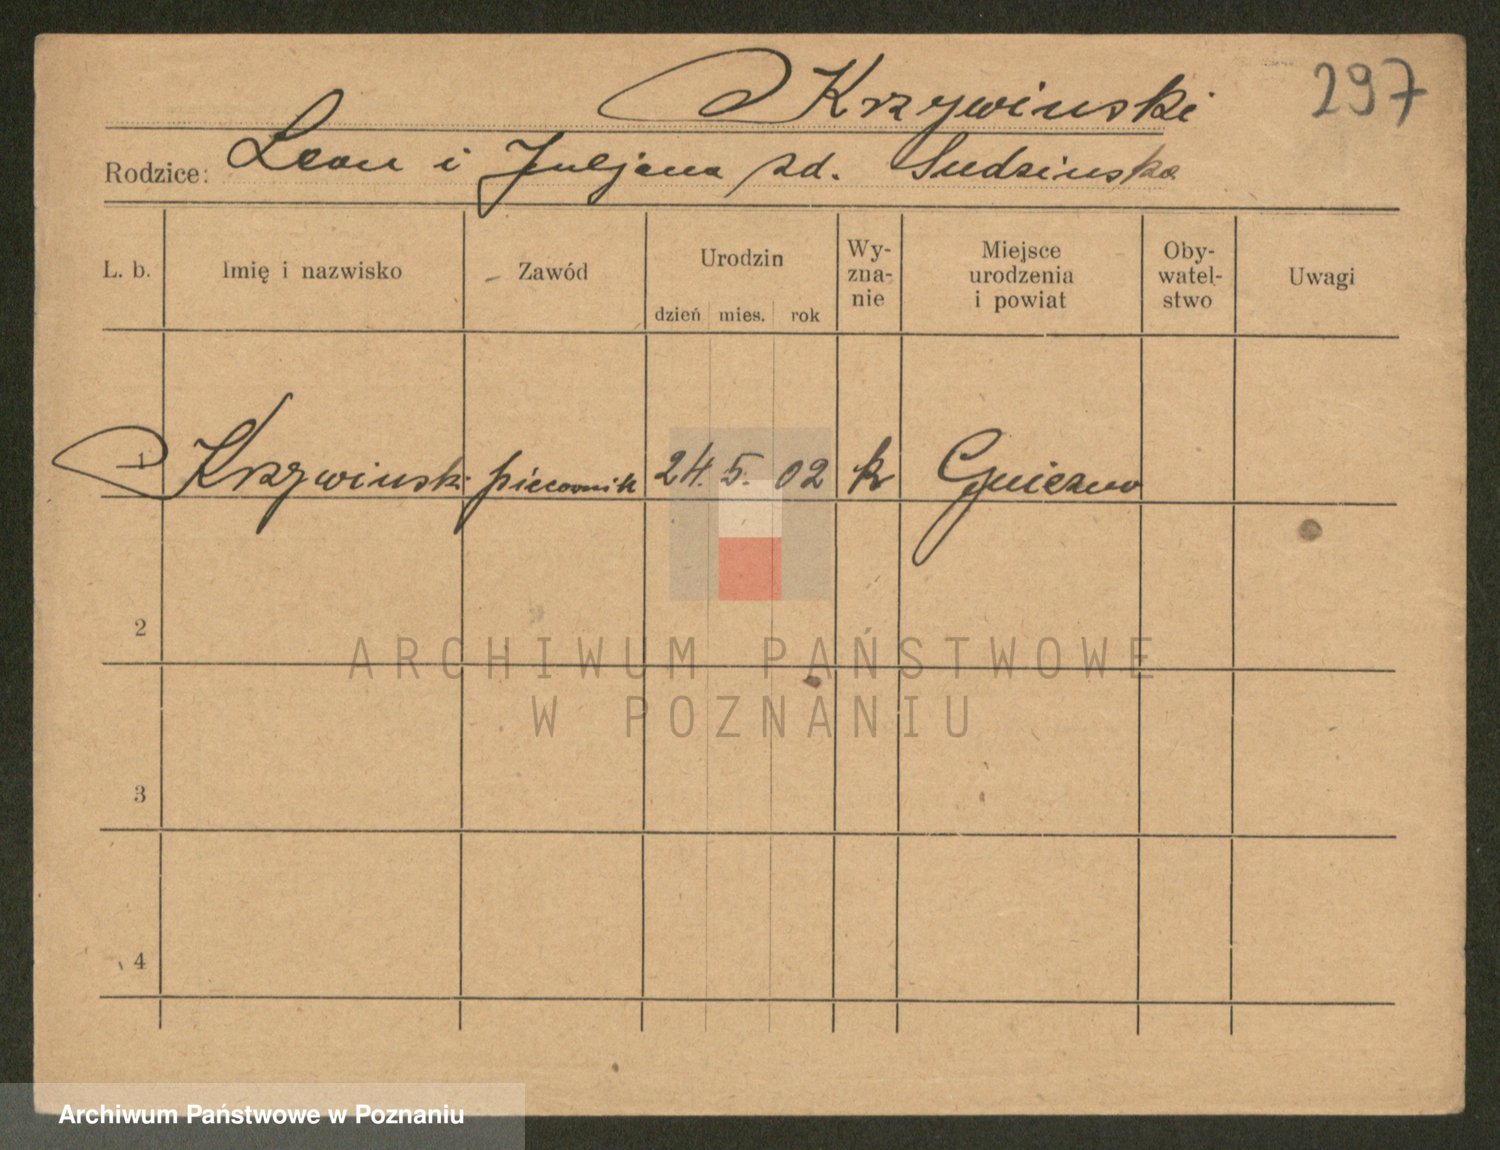 Krzywinski 297
Rodzice: Leon i Juljana zd. Sudzinska
L. b. Imię i nazwisko Zawód Urodzin dzień mies. rok Wy-zna-nie Miejsce urodzenia i powiat Oby-watel-stwo Uwagi
1 Krzywinski piecownik 24. 5. 02 k Gniezno
2
ARCHIWUM PAŃSTWOWE
W POZNANIU
3
4
Archiwum Państwowe w Poznaniu